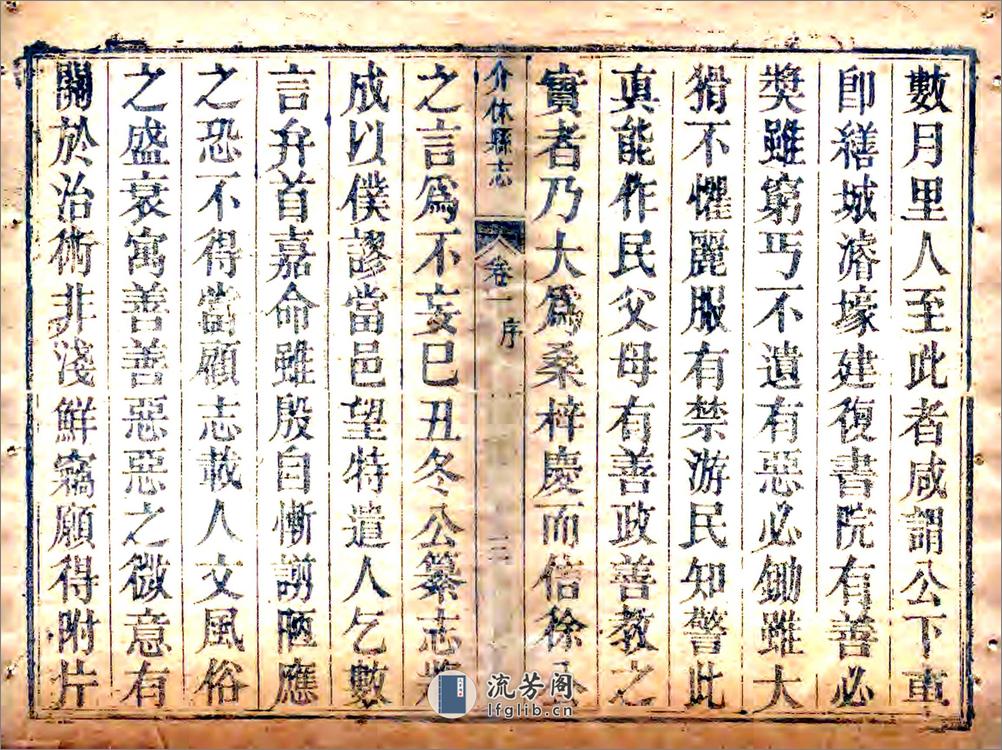 數月里人至此者咸謂公下車
卽繕城濬壕建復書院有善必
奬雖窮丐不遺有惡必鋤雖大
猾不懼麗服有禁游民知警此
眞能作民父母有善政善教之
實者乃大爲桑梓慶而信徐
介休縣志 卷一 序 三
之言爲不妄巳丑冬公纂志
成以僕謬當邑望特遣人乞數
言弁首嘉命雖殷自慚譾陋應
之恐不得當顧志載人文風俗
之盛衰寓善善惡惡之微意有
關於治術非淺鮮竊願得附片
流芳阁
lfglib.cn